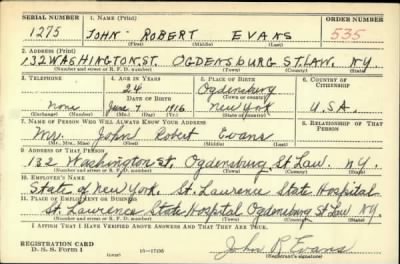 SERIAL NUMBER 1. NAME (Print) ORDER NUMBER
1275 JOHN ROBERT EVANS 535
(First) (Middle) (Last)
2. ADDRESS (Print)
132 WASHINGTON ST. OGDENSBURG ST. LAW. N.Y.
(Number and street or R. F. D. number) (Town) (County) (State)
3. TELEPHONE 4. AGE IN YEARS 5. PLACE OF BIRTH 6. COUNTRY OF CITIZENSHIP
24 Ogdensburg
DATE OF BIRTH (Town or county)
None June 7 1916 New York U.S.A.
(Exchange) (Number) (Mo.) (Day) (Yr.) (State or country)
7. NAME OF PERSON WHO WILL ALWAYS KNOW YOUR ADDRESS 8. RELATIONSHIP OF THAT PERSON
Mrs. John Robert Evans
(Mr., Mrs., Miss) (First) (Middle) (Last)
9. ADDRESS OF THAT PERSON
132 Washington St. Ogdensburg St Law N.Y.
(Number and street or R. F. D. number) (Town) (County) (State)
10. EMPLOYER'S NAME
State of New York. St. Lawrence State Hospital
11. PLACE OF EMPLOYMENT OR BUSINESS
St. Lawrence State Hospital Ogdensburg St Law N.Y.
(Number and street or R. F. D. number) (Town) (County) (State)
I AFFIRM THAT I HAVE VERIFIED ABOVE ANSWERS AND THAT THEY ARE TRUE.
REGISTRATION CARD
D. S. S. Form 1 (over) John R. Evans
(Registrant's signature)